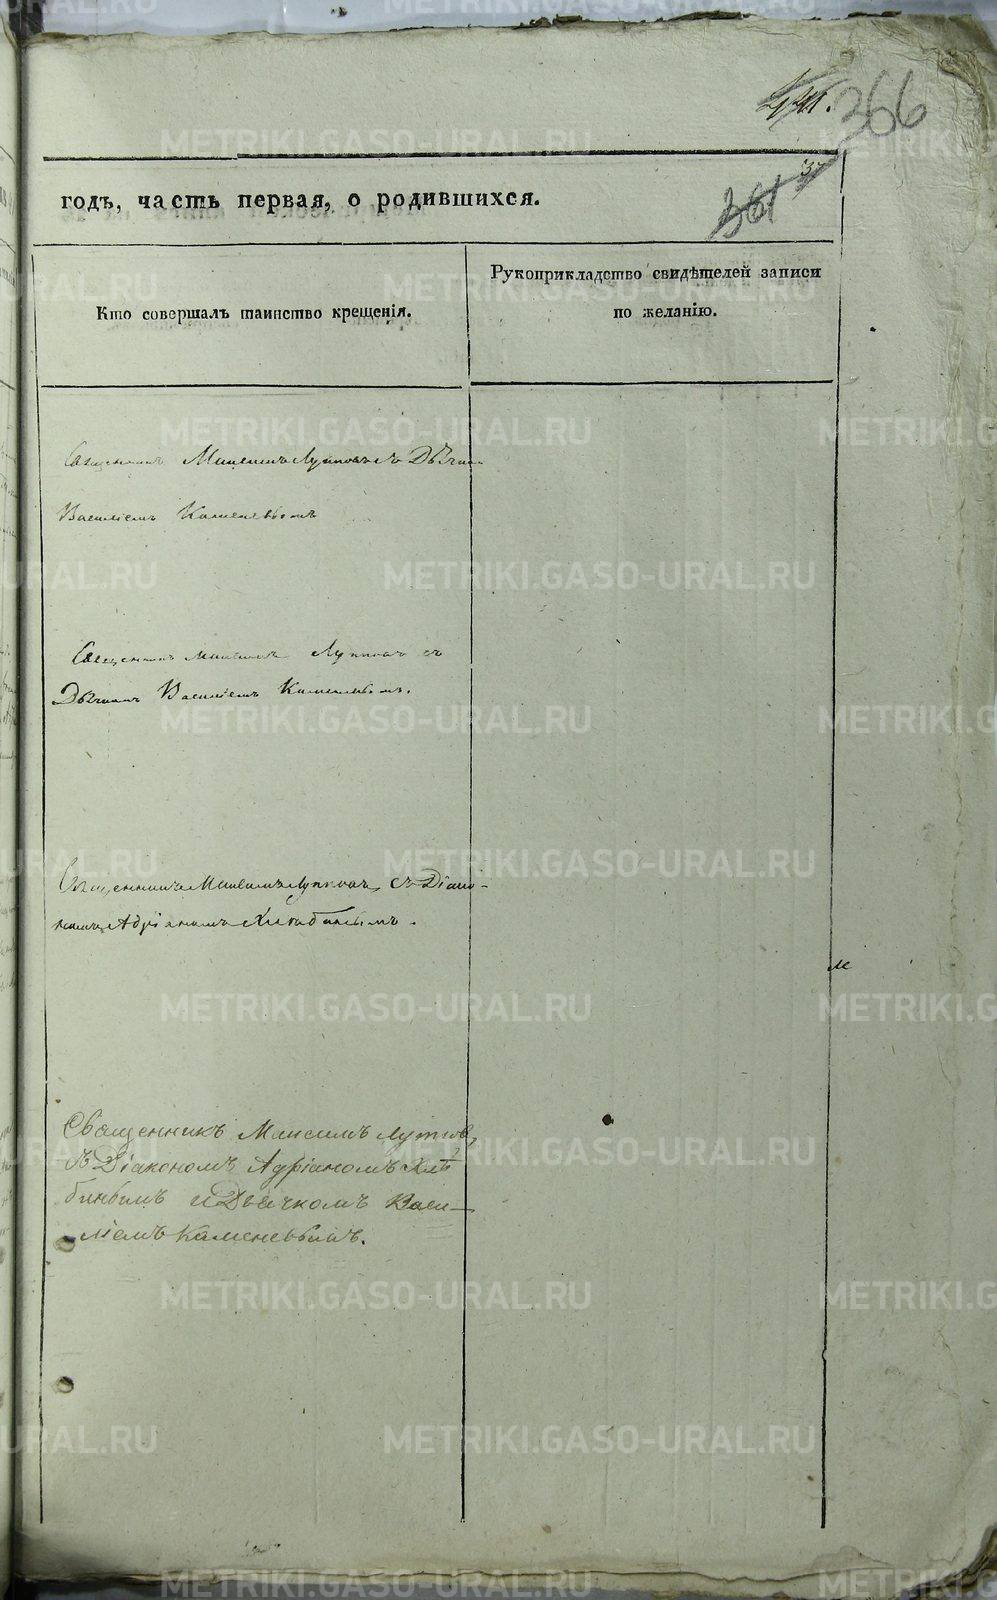 366
361
37
годъ, часть первая, о родившихся.
Кто совершалъ таинство крещенія.
Рукоприкладство свидѣтелей записи
по желанію.
Священникъ Максимъ Лупповъ съ Дьячко
Василіемъ Каменевымъ
Священникъ Максимъ Лупповъ съ
Дьячкомъ Василіемъ Каменевымъ.
Священникъ Максимъ Лупповъ, съ Діако-
номъ Адріаномъ Хлебинымъ.
Священникъ Максимъ Лупповъ,
съ Діакономъ Адріаномъ Хлѣ
бинымъ и Дьячкомъ Васи-
ліемъ Каменевымъ.
METRIKI.GASO-URAL.RU